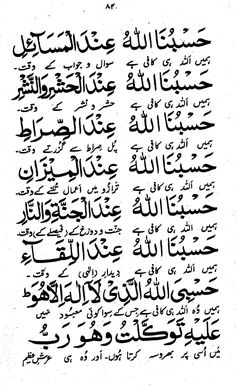 ۸۴
حَسْبُنَا اللهُ عِنْدَ الْمَسَآئِلِ
ہمیں اللہ ہی کافی ہے سوال و جواب کے وقت۔
حَسْبُنَا اللهُ عِنْدَ الْحَشْرِ وَالنَّشْرِ
ہمیں اللہ ہی کافی ہے حشر و نشر کے وقت۔
حَسْبُنَا اللهُ عِنْدَ الصِّرَاطِ
ہمیں اللہ ہی کافی ہے پل صراط سے گزرتے وقت۔
حَسْبُنَا اللهُ عِنْدَ الْمِيْزَانِ
ہمیں اللہ ہی کافی ہے ترازو میں اعمال تلنے کے وقت۔
حَسْبُنَا اللهُ عِنْدَ الْجَنَّةِ وَالنَّارِ
ہمیں اللہ ہی کافی ہے جنت و دوزخ کے (فیصلے کے) وقت۔
حَسْبُنَا اللهُ عِنْدَ اللِّقَآءِ
ہمیں اللہ ہی کافی ہے دیدار (الٰہی) کے وقت۔
حَسْبِيَ اللهُ الَّذِىْ لَآ اِلٰهَ اِلَّا هُوَ ط
ہمیں وہ اللہ ہی کافی ہے جس کے سوا کوئی معبود نہیں
عَلَيْهِ تَوَكَّلْتُ وَهُوَ رَبُّ
میں اسی پر بھروسہ کرتا ہوں۔ اور وہ ہی عرش عظیم